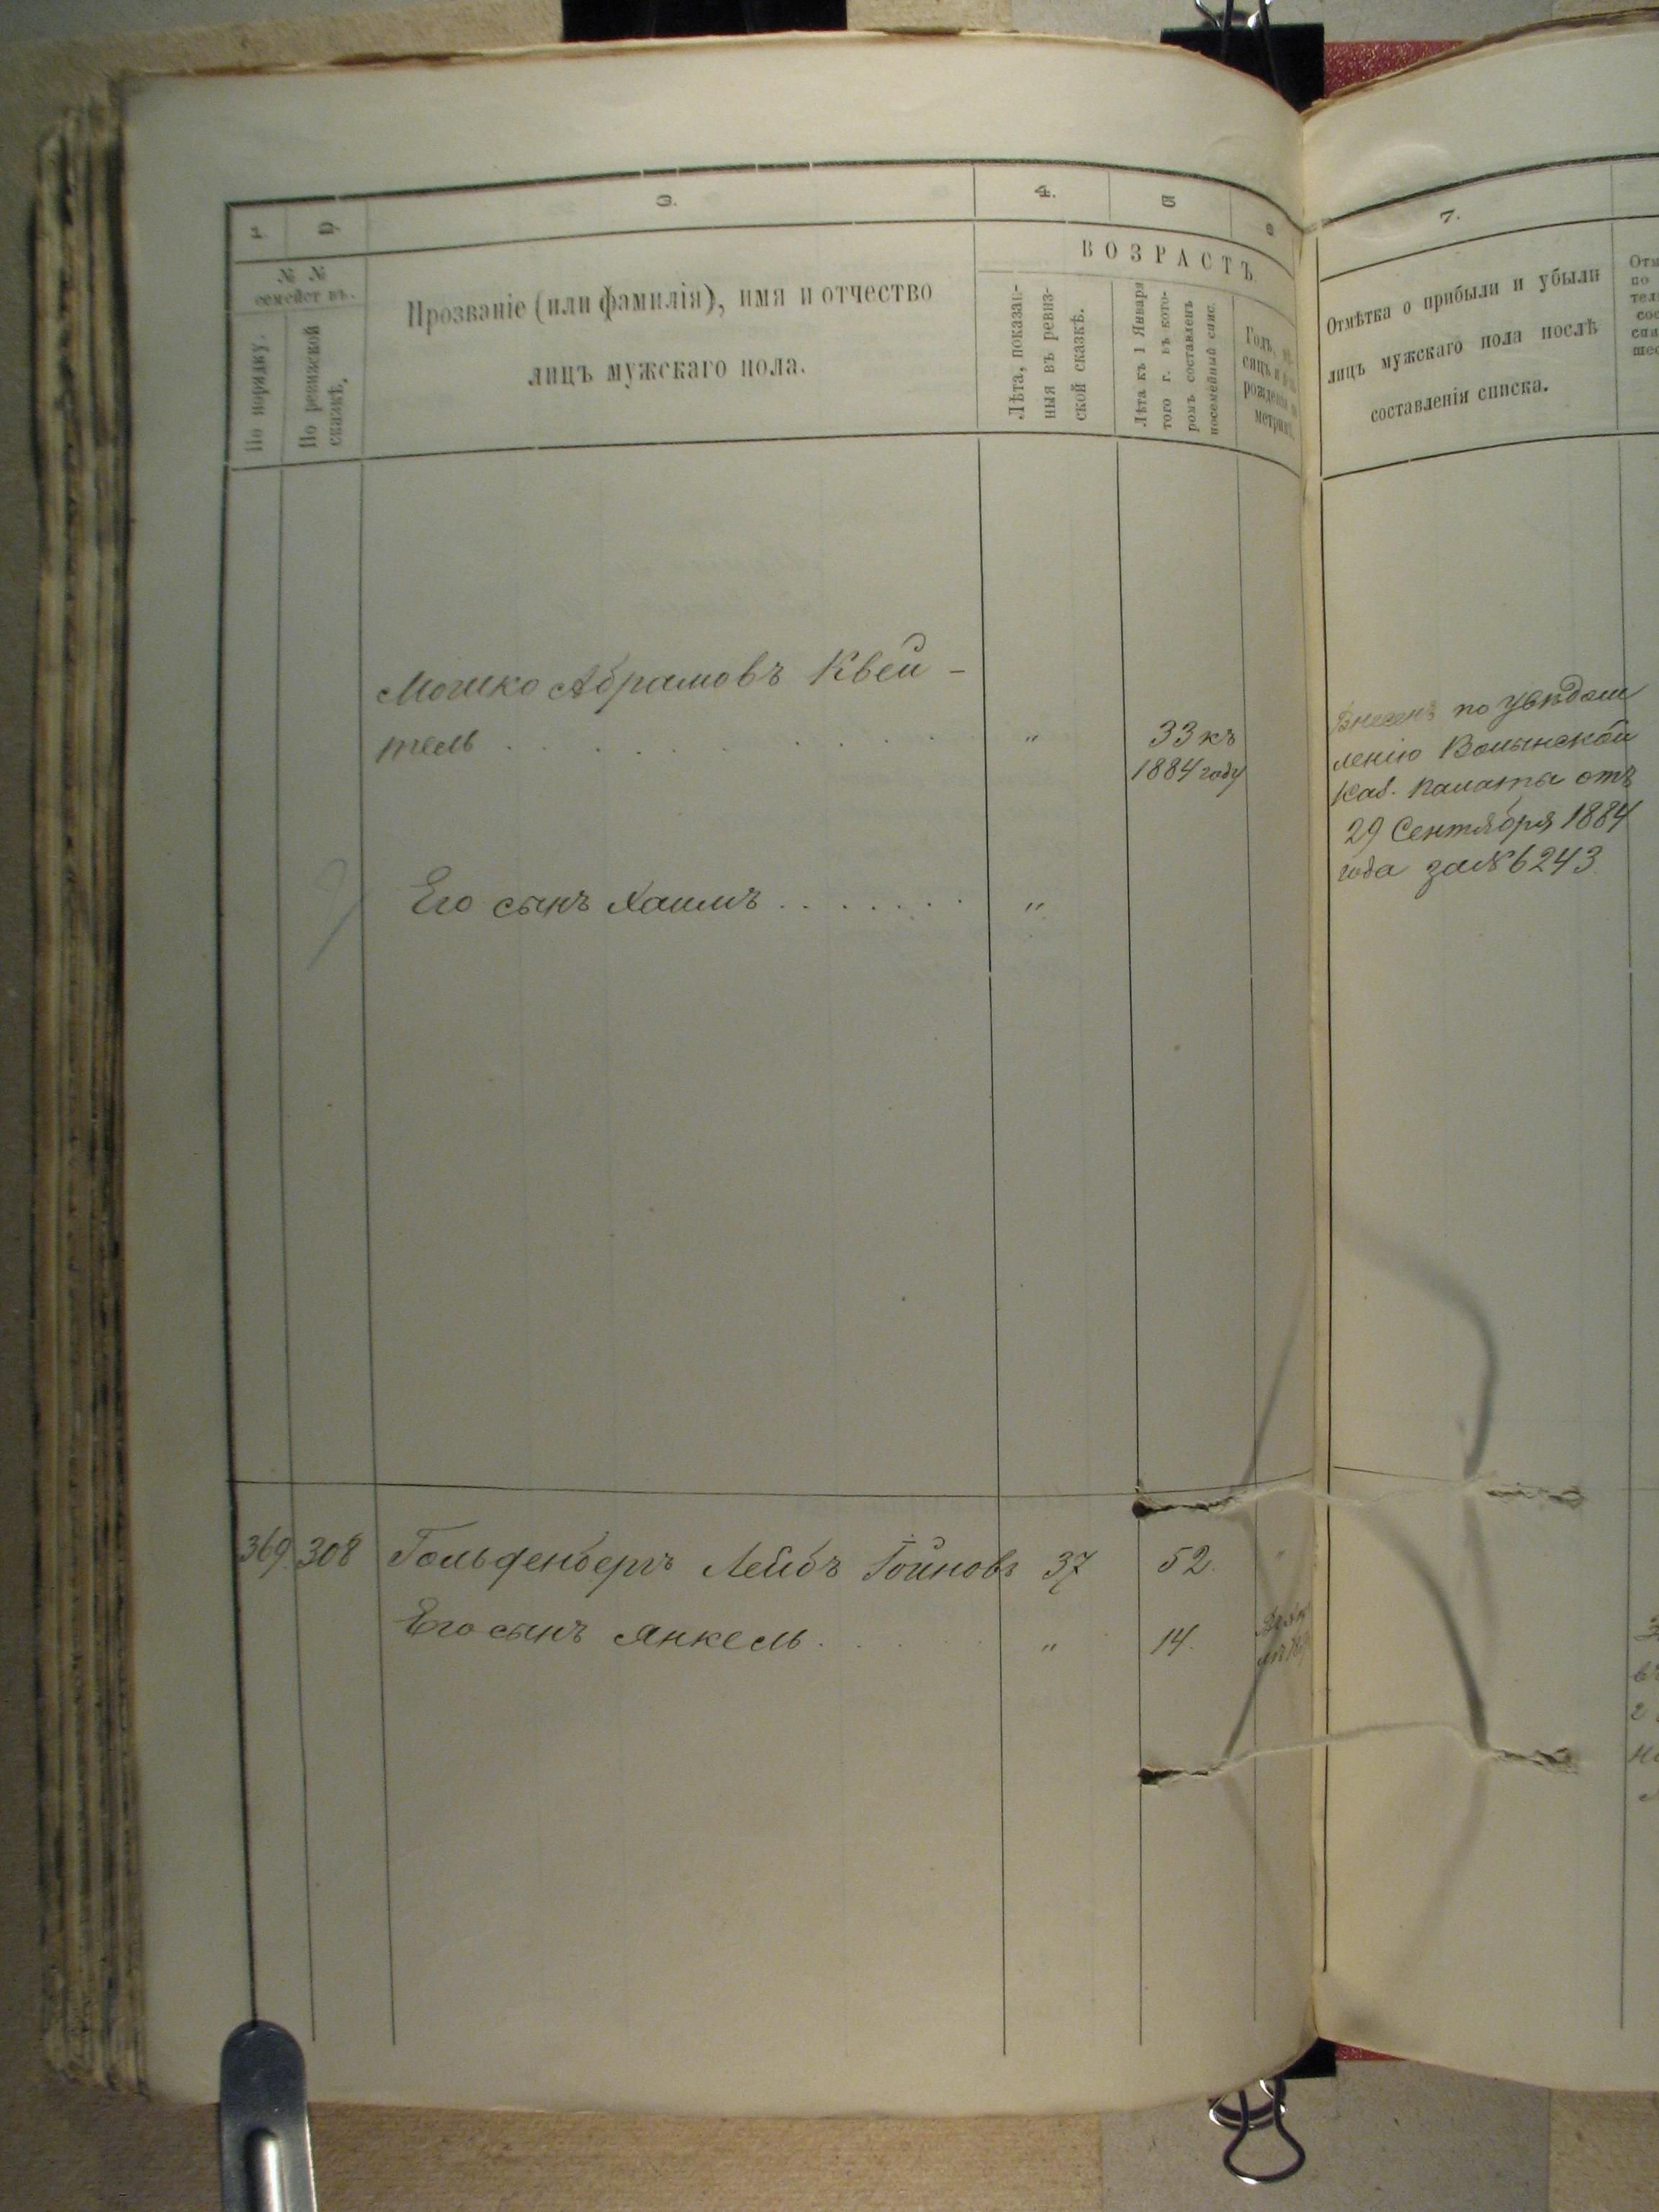 1.
2.
3.
4.
5
6
№ №
семействъ.
По порядку.
По ревизской
сказкѣ.
Прозваніе (или фамилія), имя и отчество
лицъ мужскаго пола.
ВОЗРАСТЪ
Лѣта, показан-
ныя въ ревиз-
ской сказкѣ.
Лѣта къ 1 Января
того г. въ кото-
ромъ составленъ
посемейный спис.
Годъ, мѣ-
сяцъ и
рожденія
метрик.
7.
Отмѣтка о прибыли и убыли
лицъ мужскаго пола послѣ
составленія списка.
Мошко Абрамовъ Квей-
тель . . . . . . . . . " 33 къ
1884 году
Внесенъ по увѣдом
ленію Волынской
Каз. палаты отъ
29 Сентября 1884
года за № 6243
Его сынъ Хаимъ . . . . . . . "
369. 308 Гольфенберъ Лейбъ 37 52. "
Его сынъ Янкель . . . . " 14.